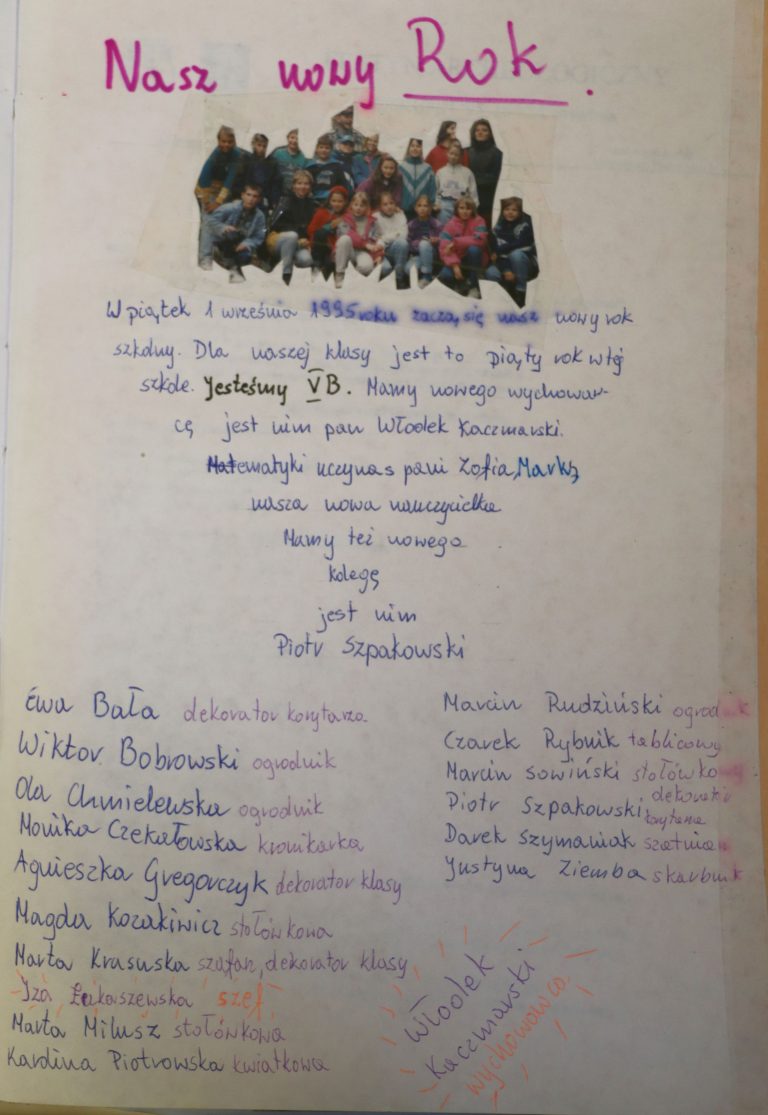 Nasz nowy Rok.
W piątek 1 września 1995 roku zaczą się nasz nowy rok
szkolny. Dla naszej klasy jest to piąty rok w tej
szkole. Jesteśmy V B. Mamy nowego wychowaw-
cę jest nim pan Włodek Kaczmarski.
Matematyki uczy nas pani Zofia Mark,
nasza nowa nauczycielka
Mamy też nowego
kolegę
jest nim
Piotr Szpakowski
Ewa Bała dekorator korytarza
Wiktor Bobrowski ogrodnik
Ola Chmielewska ogrodnik
Monika Czekałowska kronikarka
Agnieszka Gregorczyk dekorator klasy
Magda Kozakiwicz stołówkowa
Marta Krasuska szafan, dekorator klasy
Iza Łukaszewska szef
Marta Milusz stołówkowa
Karolina Piotrowska kwiatkowa
Marcin Rudziński ogrodnik
Czarek Rybnik tablicowy
Marcin Sowiński stołówkowy
Piotr Szpakowski dekorator
korytarza
Darek Szymaniak szatniarz
Justyna Ziemba skarbnik
Włodek
Kaczmarski
wychowawca.